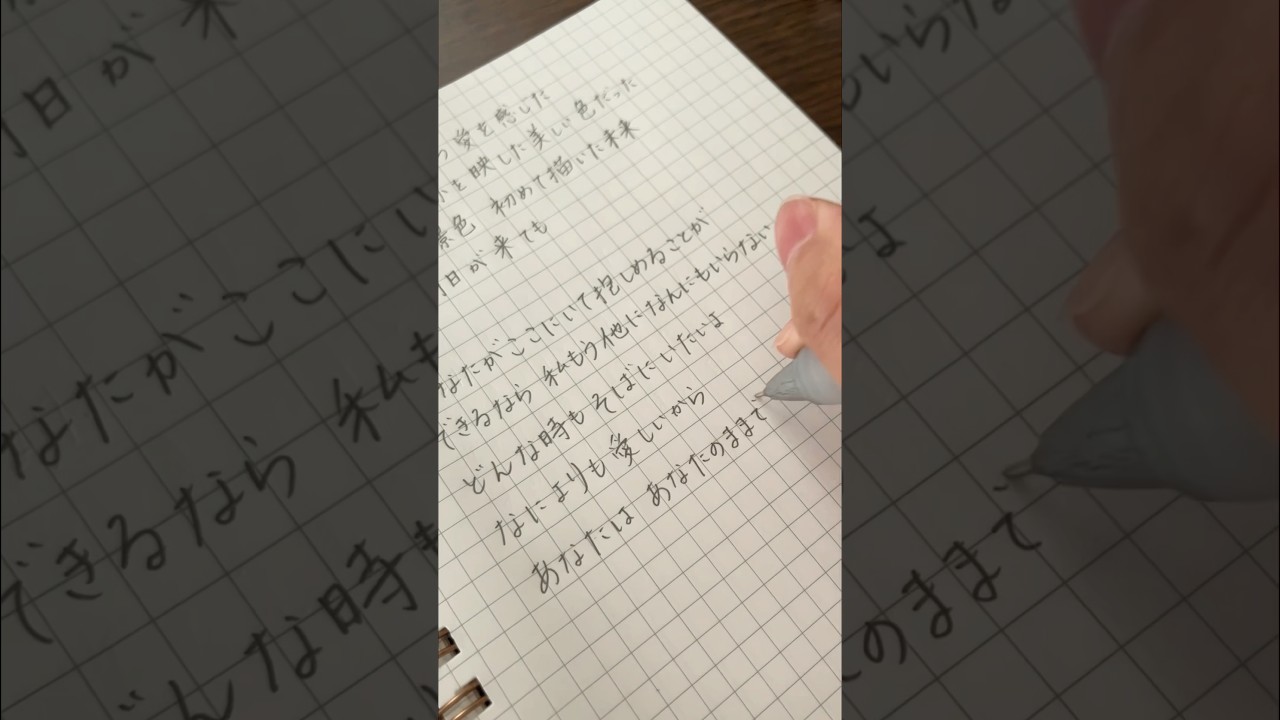 愛を感じた
を映した美しい色だった
景色 初めて描いた未来
日が来ても
なたがここにいて抱しめることが
できるなら 私もう他になんにもいらない
どんな時もそばにいたいよ
なによりも愛しいから
あなたは あなたのままて